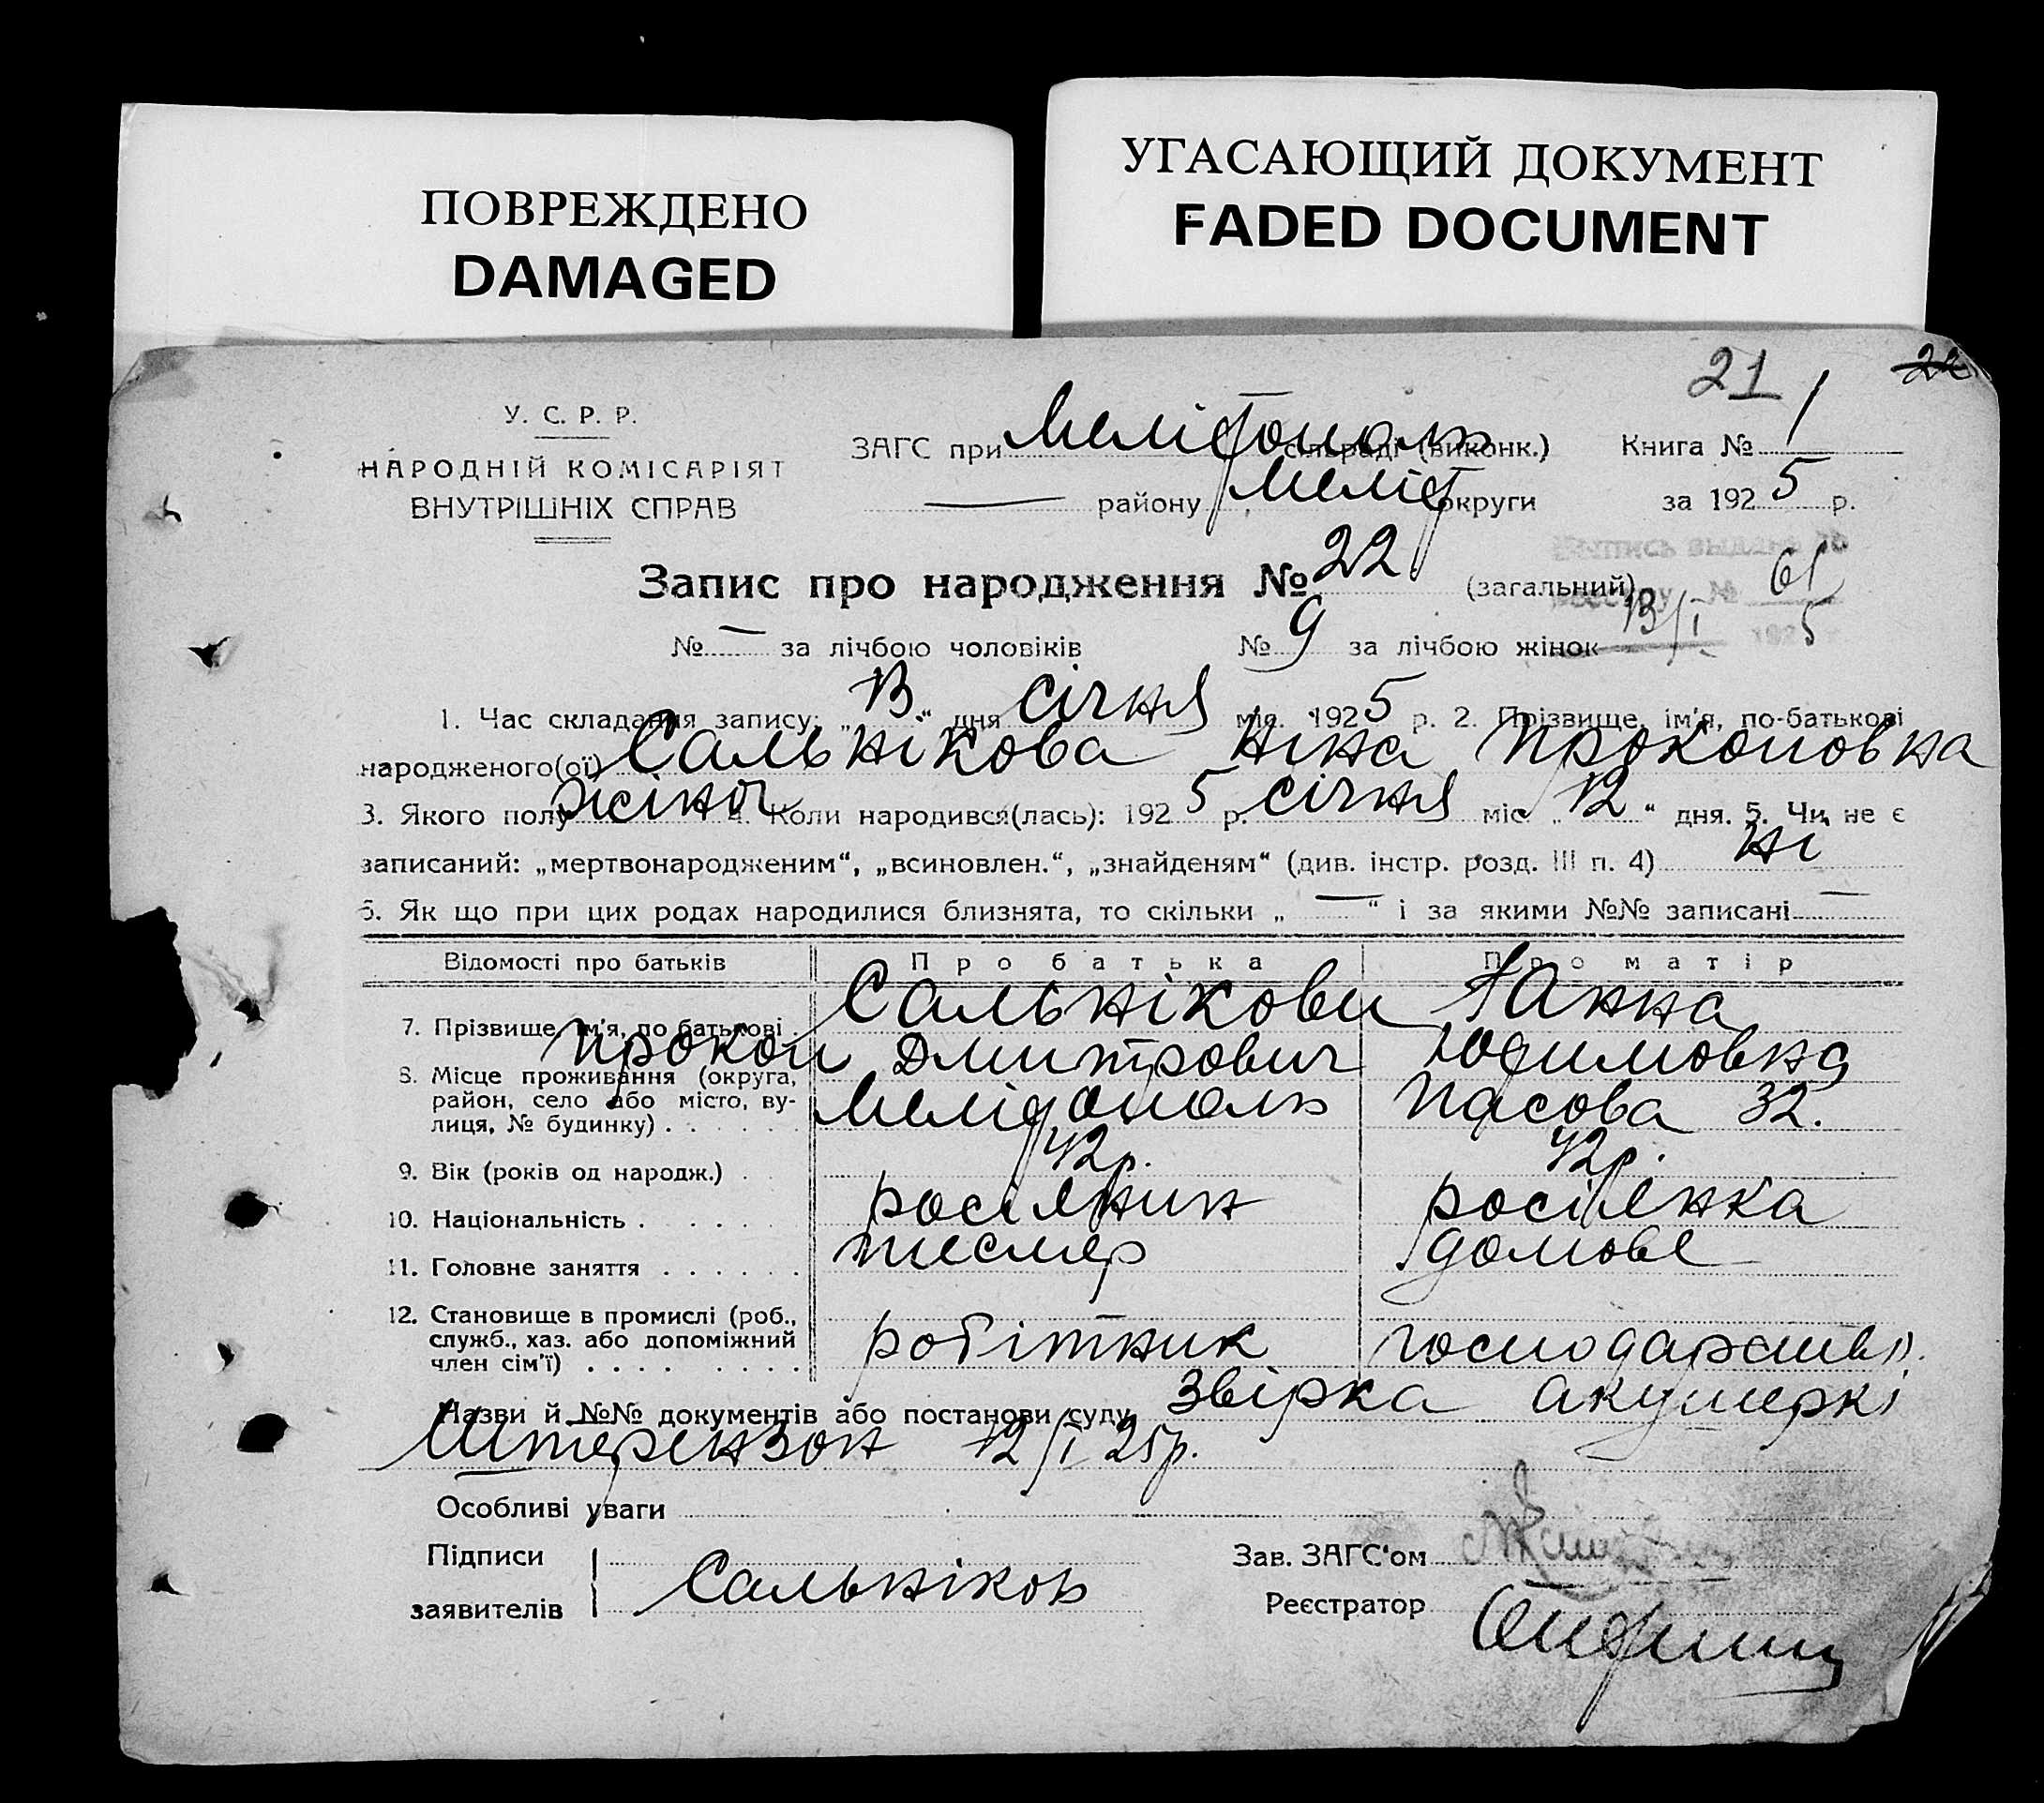 ПОВРЕЖДЕНО
DAMAGED
УГАСАЮЩИЙ ДОКУМЕНТ
FADED DOCUMENT
21 22
У. С. Р. Р.
НАРОДНІЙ КОМІСАРІЯТ
ВНУТРІШНІХ СПРАВ
ЗАГС при Мелітополь сільраді (виконк.) Книга № 1
— району Меліт округи за 1925 р.
Запис про народження № 22 (загальний)
61
№ — за лічбою чоловіків № 9 за лічбою жінок 13/I 1925
1. Час складання запису: „13“ дня січня міс. 1925 р. 2. Прізвище, ім'я, по-батькові
народженого(ої) Сальнікова Ніна Прокоповна
3. Якого полу жіноч 4. Коли народився(лась): 1925 р. січня міс. „12“ дня. 5. Чи не є
записаний: „мертвонародженим“, „всиновлен.“, „знайденям“ (див. інстр. розд. III п. 4) ні
6. Як що при цих родах народилися близнята, то скільки „—“ і за якими №№ записані —
Відомості про батьків Про батька Про матір
7. Прізвище, ім'я, по батькові . Сальнікови Ганна
Прокоп Дмитрович Юфимовна
8. Місце проживання (округа,
район, село або місто, ву-
лиця, № будинку) . . . . . . Меліфополь 32.
9. Вік (років од народж.) . . 42 р. 42 р.
10. Національність . . . . . . росіянин росіянка
11. Головне заняття . . . . . . тесляр домове
12. Становище в промислі (роб.,
служб., хаз. або допоміжний
член сім'ї) . . . . . . . . робітник господарств.
Назви й №№ документів або постанови суду Звірка акушеркі
Штерензон 12/I 25р.
Особливі уваги
Підписи
заявителів Сальніков
Зав. ЗАГС'ом
Реєстратор